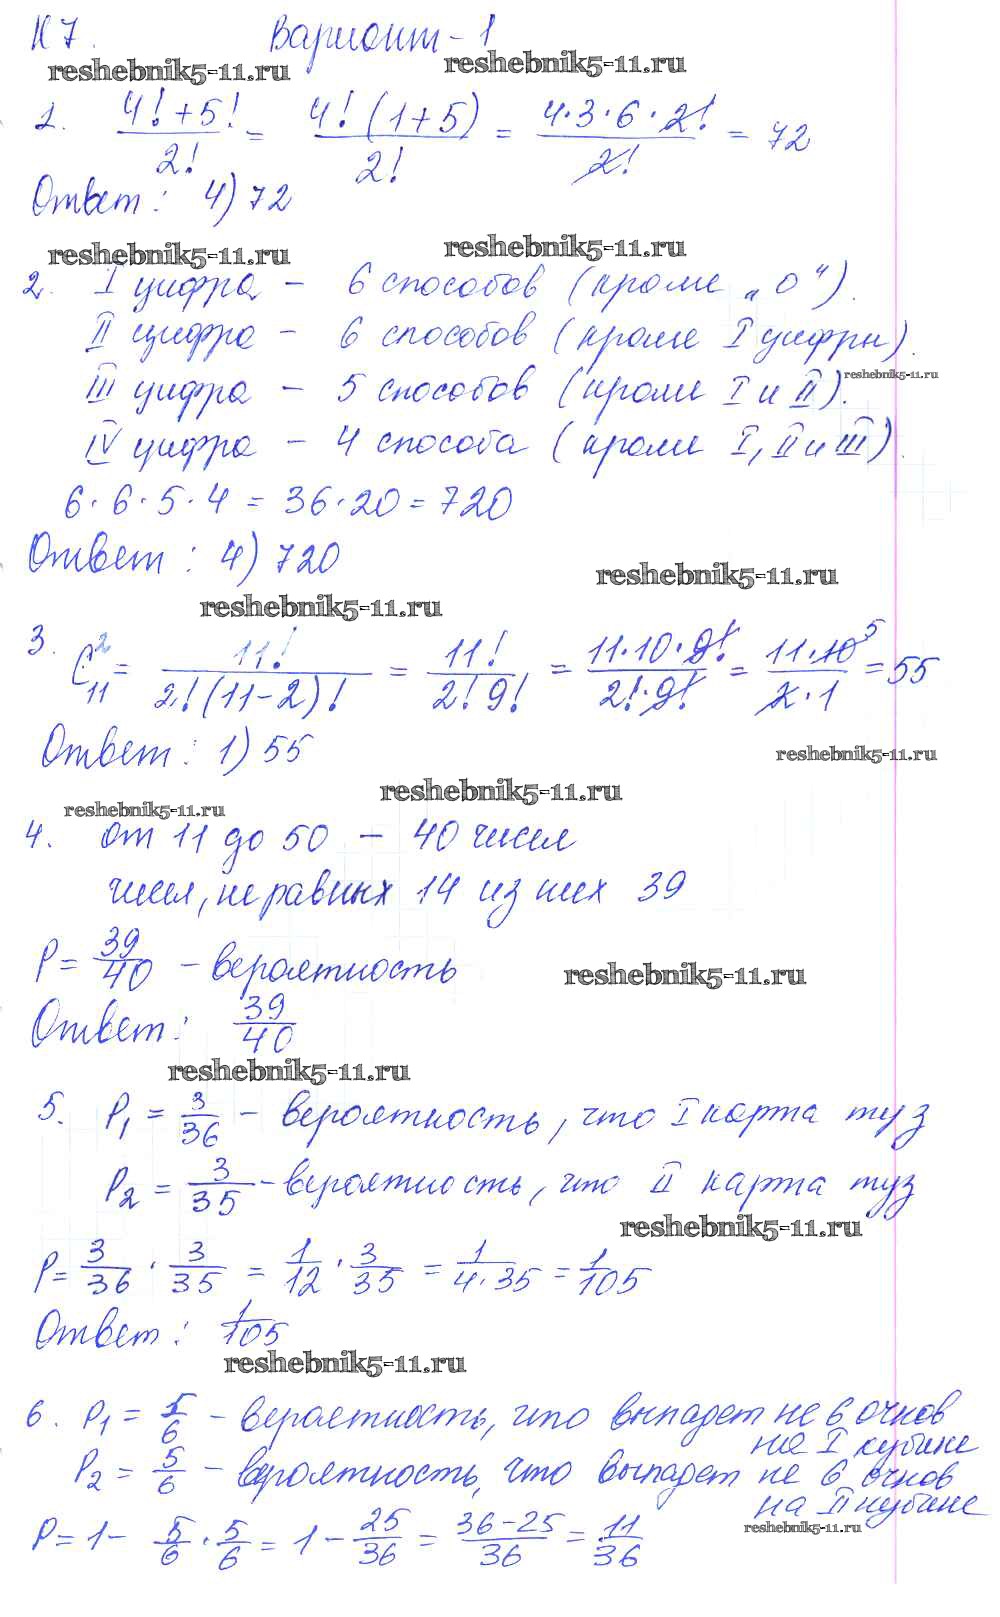 К 7. Вариант - 1
reshebnik5-11.ru reshebnik5-11.ru
1. (4! + 5!)/2! = (4! (1+5))/2! = (4·3·6·2!)/2! = 72
Ответ: 4) 72
reshebnik5-11.ru reshebnik5-11.ru
2. I цифра - 6 способов (кроме „0“).
II цифра - 6 способов (кроме I цифры).
reshebnik5-11.ru
III цифра - 5 способов (кроме I и II).
IV цифра - 4 способа (кроме I, II и III).
6·6·5·4 = 36·20 = 720
Ответ: 4) 720
reshebnik5-11.ru
reshebnik5-11.ru
3. C₁₁² = 11!/(2!(11-2)!) = 11!/(2! 9!) = (11·10·9!)/(2!·9!) = (11·10 5)/(2·1) = 55
Ответ: 1) 55
reshebnik5-11.ru
reshebnik5-11.ru
reshebnik5-11.ru
4. от 11 до 50 - 40 чисел
чисел, не равных 14 из них 39
P = 39/40 - вероятность
reshebnik5-11.ru
Ответ: 39/40
reshebnik5-11.ru
5. P₁ = 3/36 - вероятность, что I карта туз
P₂ = 3/35 - вероятность, что II карта туз
reshebnik5-11.ru
P = 3/36 · 3/35 = 1/12 · 3/35 = 1/(4·35) = 1/105
Ответ: 1/105
reshebnik5-11.ru
6. P₁ = 5/6 - вероятность, что выпадет не 6 очков
на I кубике
P₂ = 5/6 - вероятность, что выпадет не 6 очков
на II кубике
reshebnik5-11.ru
P = 1 - 5/6 · 5/6 = 1 - 25/36 = (36-25)/36 = 11/36